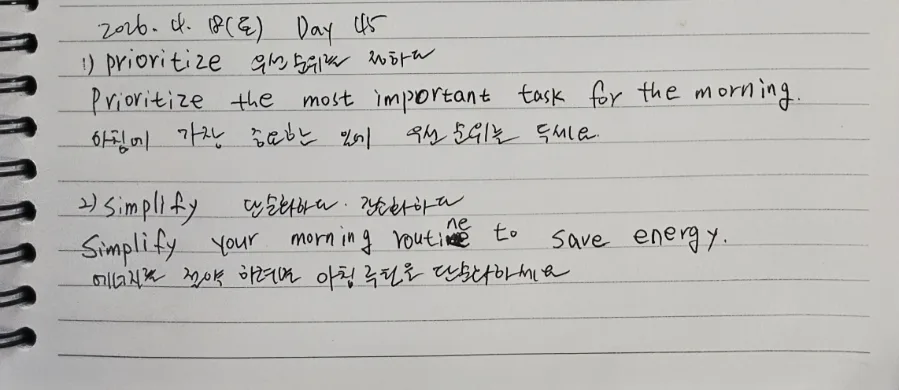 2026. 4. 18(토) Day 45
1) prioritize 우선순위를 정하다
Prioritize the most important task for the morning.
아침에 가장 중요한 일에 우선순위를 두세요.
2) simplify 단순화하다. 간소화하다
Simplify your morning routine to save energy.
에너지를 절약하려면 아침 루틴을 단순화하세요